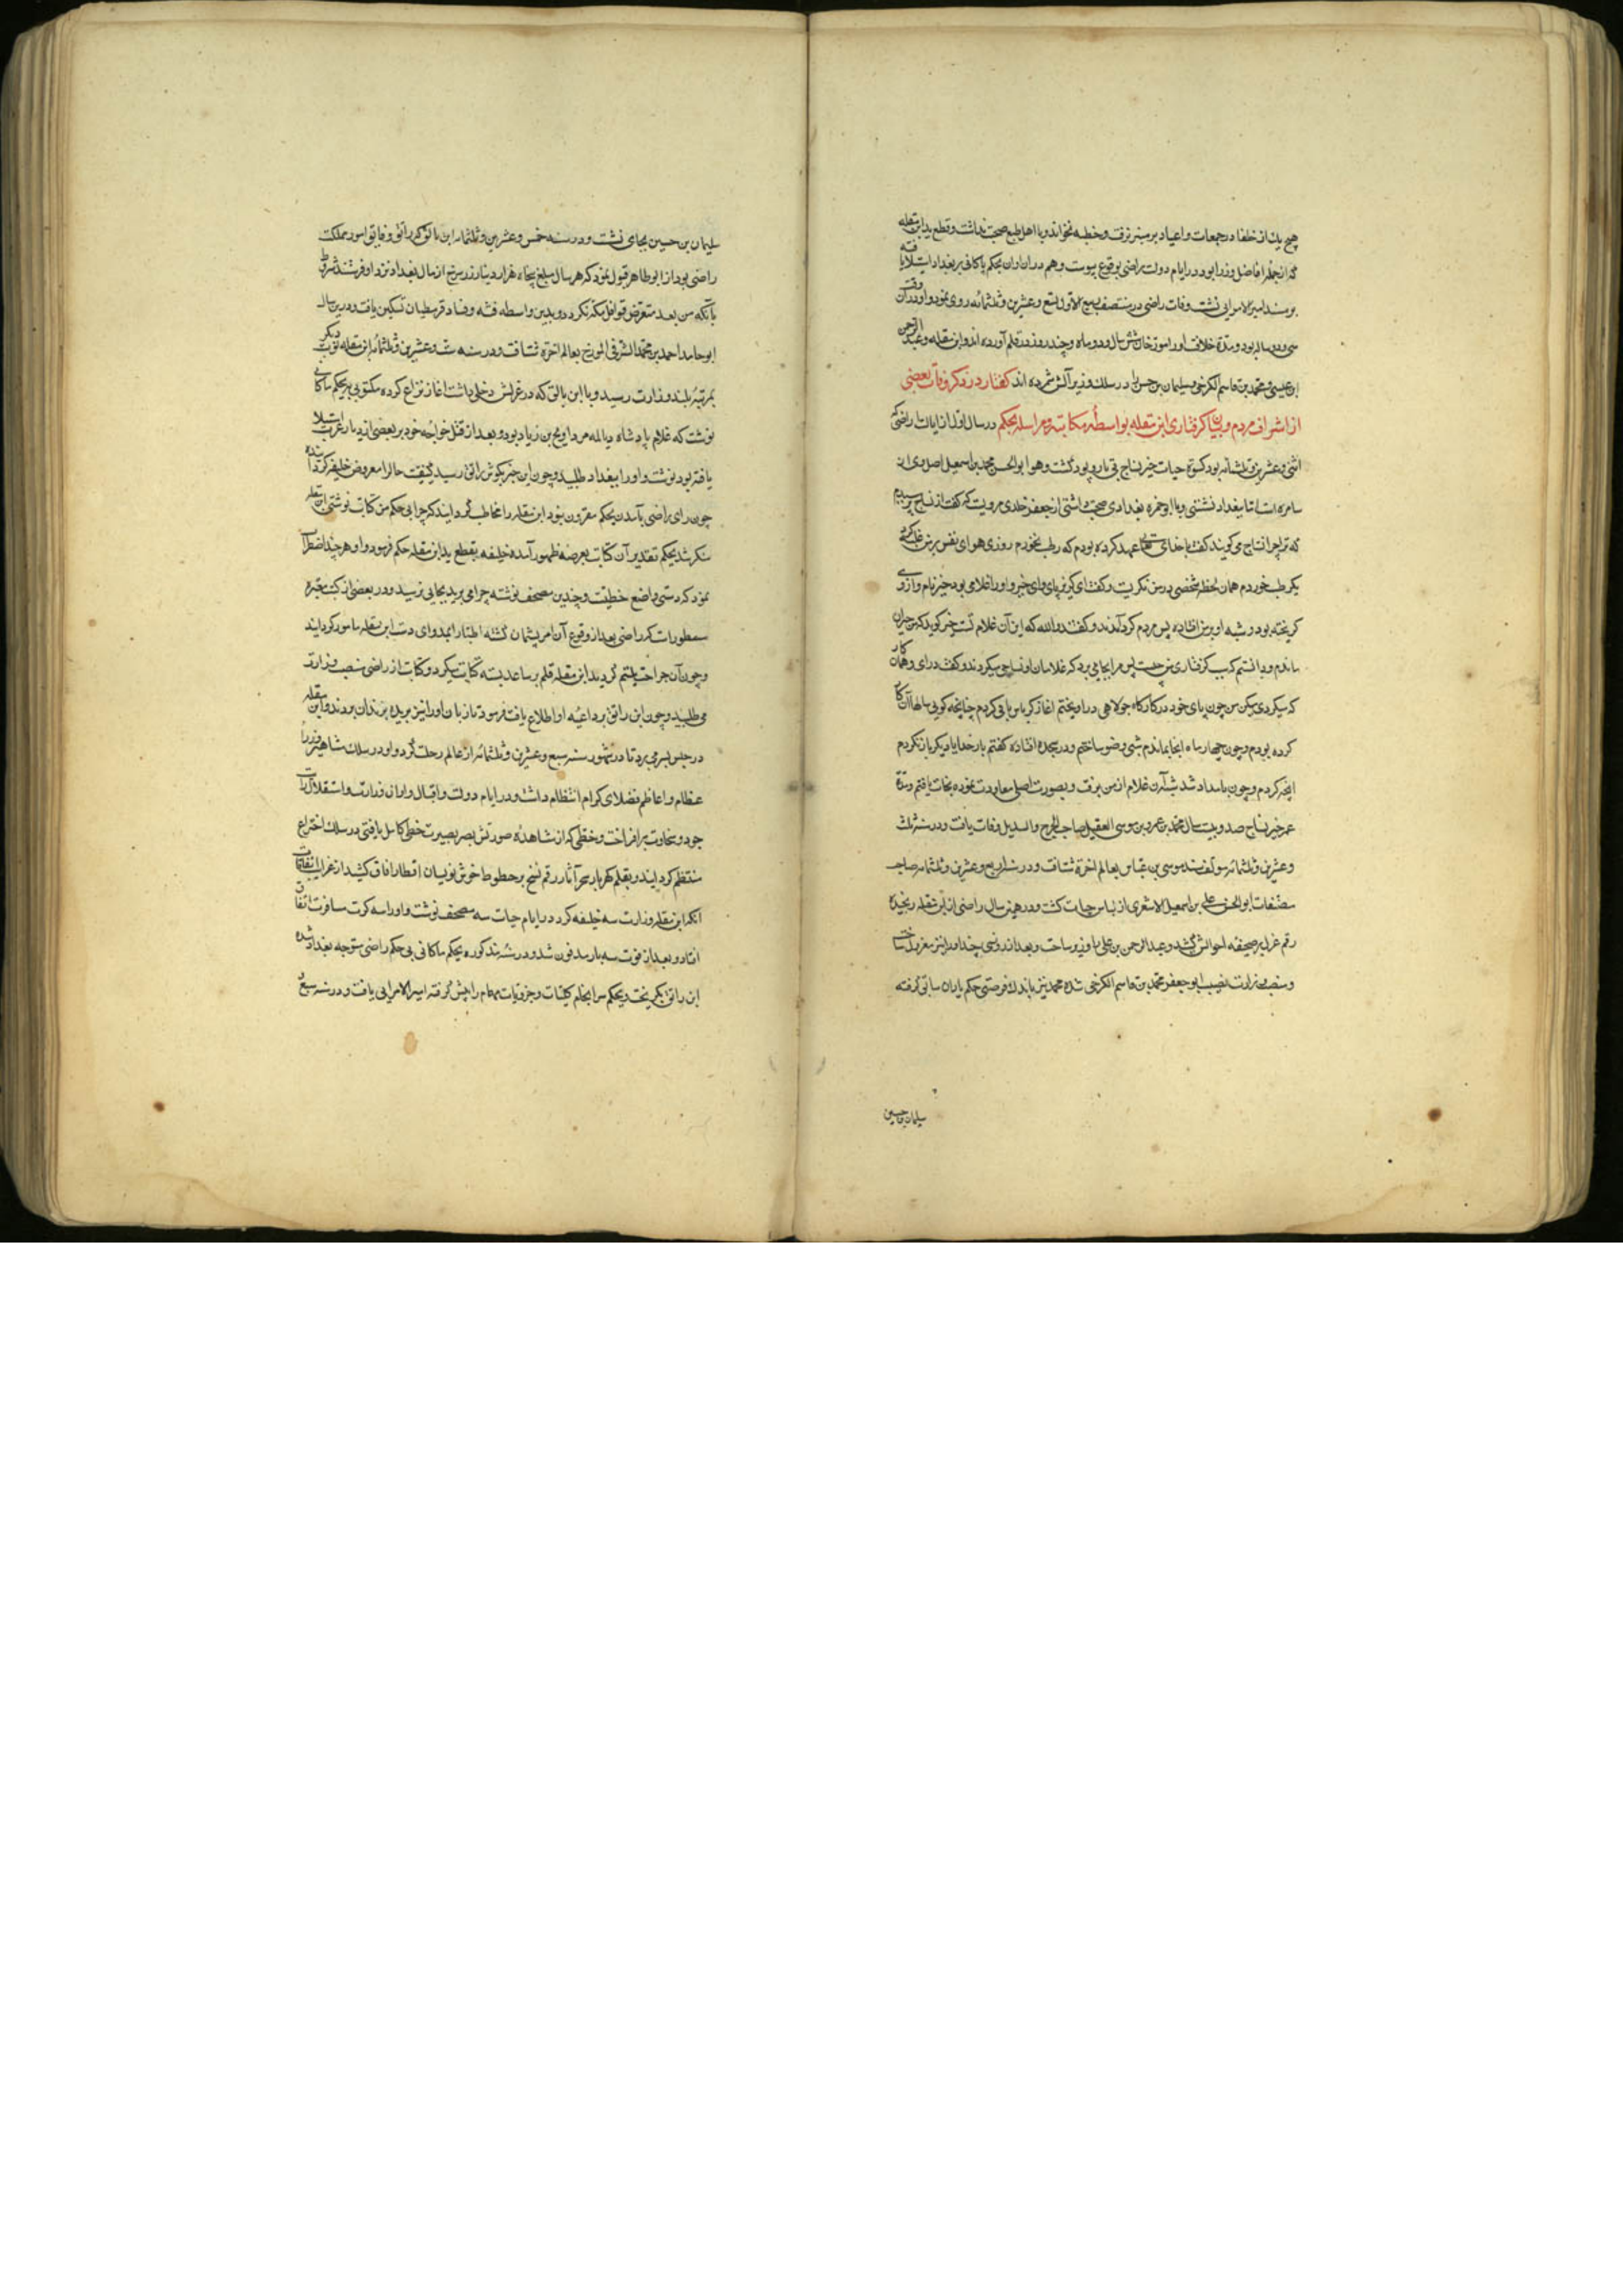 هیچ یک از خلفا در جمعات و اعیاد بر منبر نرفت و خطبه نخواند و با اهل طبع صحبت نداشت و قطع ید ابن مقله
که از جمله افاضل وزرا بود در ایام دولت راضی بوقوع پیوست و هم در آن اوان بحکم ماکانی بر بغداد استیلا یافته
بر مسند امیر الامرایی نشست وفات راضی در منتصف ربیع الاول تسع و عشرین و ثلثمائه روی نمود و او در آن وقت
سی و دو ساله بود و مدة خلافت او را مورخان شش سال و دو ماه و چند روز در قلم آورده اند و ابن مقله و عبد الرحمن
ابن عیسی و محمد بن قاسم الکرخی و سلیمان بن حسن را در سلک وزیرانش شمرده اند گفتار در ذکر وفات بعضی
از اشراف مردم و بیان گرفتاری ابن مقله بواسطه مکاتبه و مراسله بحکم در سال اول از ایالت راضی که
اثنی و عشرین و ثلثمائه بود کسوة حیات خیر نساج بی تار و پود گشت و هو ابو الحسن محمد بن اسمعیل اصل وی از
سامره است اما ببغداد نشستی و با ابو حمزه بغدادی صحبت داشتی از جعفر خلدی مرویست که گفت از نساج پرسیدم
که ترا چرا نساج می گویند گفت با خدای تعالی عهد کرده بودم که رطب نخورم روزی هوای نفس بر من غلبه کرد
یک رطب خوردم همان لحظه شخصی در من نگریست و گفت ای گریزپای وای خیر و او را غلامی بود خیر نام و از وی
گریخته بود و شبه او بر من افتاده پس مردم گرد آمدند و گفتند و الله که این آن غلام تست خیر گوید که من حیران
ماندم و دانستم که سبب گرفتاری من چیست پس مرا بجایی برد که غلامان او نساجی میکردند و گفت در آی و همان کار
که میکردی میکن من چون پای خود در کارگاه جولاهی در آویختم آغاز کرباس بافی کردم چنانچه گویی سالها آن کار
کرده بودم و چون چهار ماه آنجا بماندم شبی وضو ساختم و در سجده افتاده گفتم بار خدایا دیگر باز نگردم
آنچه کردم و چون بامداد شد شبه آن غلام از من برفت و بصورت اصلی معاودت نموده نجات یافتم و مدة
عمر خیر نساج صد و بیست سال محمد بن عمرو بن موسی العقیلی صاحب الجرح و التعدیل وفات یافت و در سنه ثلث
و عشرین و ثلثمائه موسی بن عباس بعالم آخرة شتافت و در سنه اربع و عشرین و ثلثمائه صاحب
مصنفات ابو الحسن علی بن اسمعیل الاشعری از لباس حیات گشت و در همین سال راضی از ابن مقله رنجیده
رقم عزل بر صحیفه احوالش کشید و عبد الرحمن بن علی را وزیر ساخت و بعد از روزی چند او را نیز معزول ساخت
و منصب وزارت نصیب ابو جعفر محمد بن قاسم الکرخی شده محمد نیز باندک فرصتی حکم یاران سابق گرفته
سلیمان بن حسین
سلیمان بن حسین بجای نشست و در سنه خمس و عشرین و ثلثمائه ابن رائق که راتق و فاتق امور مملکت
راضی بود از ابو طاهر قبول نمود که هر سال مبلغ پنجاه هزار دینار زر سرخ از مال بغداد نزد او فرستد بشرط
بآنکه من بعد متعرض قوافل مکه نگردد و بدین واسطه فتنه و فساد قرمطیان تسکین یافت و در این سال
ابو حامد احمد بن محمد الشرقی بعالم آخرة شتافت و در سنه ست و عشرین و ثلثمائه ابن مقله نوبت دیگر
بمرتبه بلند وزارت رسید و با ابن رائق که در عزلش دخلی داشت آغاز نزاع کرده مکتوبی ببحکم ماکانی
نوشت که غلام پادشاه دیالمه مرداویج بن زیاد بود و بعد از قتل خواجه خود بر بعضی از دیار عرب استیلا
یافته بود نوشت و او را ببغداد طلبید و چون این خبر بگوش رائق رسید کیفیت حال را معروض خلیفه گردانیده
چون رای راضی بآمدن بحکم مقرون نبود ابن مقله را مخاطب گردانید که چرا بی حکم من کتابت نوشتی ابن مقله
منکر شد بحکم تقدیر آن کتابت بعرصه ظهور آمده خلیفه بقطع ید ابن مقله حکم فرمود و او هر چند اضطراب
نمود که دستی واضع خطیست و چندین مصحف نوشته چرا می برید بجایی نرسید و در بعضی از کتب معتبره
مسطورست که راضی بعد از وقوع آن امر پشیمان گشته اطبا را بمداوای دست ابن مقله مامور گردانید
و چون آن جراحت ملتئم گردید ابن مقله قلم بر ساعد بسته کتابت میکرد و کتابت از راضی منصب وزارت
می طلبید و چون ابن رائق بر داعیه او اطلاع یافت فرمود تا زبان او را نیز بریده بزندان بردند و ابن مقله
در حبس بسر می برد تا در شهور سنه سبع و عشرین و ثلثمائه از عالم رحلت کرد و او در سلک مشاهیر وزراء
عظام و اعاظم فضلای کرام انتظام داشت و در ایام دولت و اقبال و اوان وزارت و استقلال رایت
جود و سخاوت برافراخت و خطی که از مشاهده صورتش بصر بصیرت حظی کامل یافتی در سلک اختراع
منتظم گردانید و بقلم گهربار سحر آثار رقم نسخ بر خطوط خوش نویسان اقطار آفاق کشید از غرایب اتفاقات
آنکه ابن مقله وزارت سه خلیفه کرد در ایام حیات سه مصحف نوشت و او را سه کرت مسافرت اتفاق
افتاد و بعد از فوت سه بار مدفون شد و در سنه مذکوره بحکم ماکانی بی حکم راضی متوجه بغداد شده
ابن رائق بگریخت و بحکم سرانجام کلیات و جزویات مهام را پیش گرفته امیر الامرایی یافت و در سنه سبع